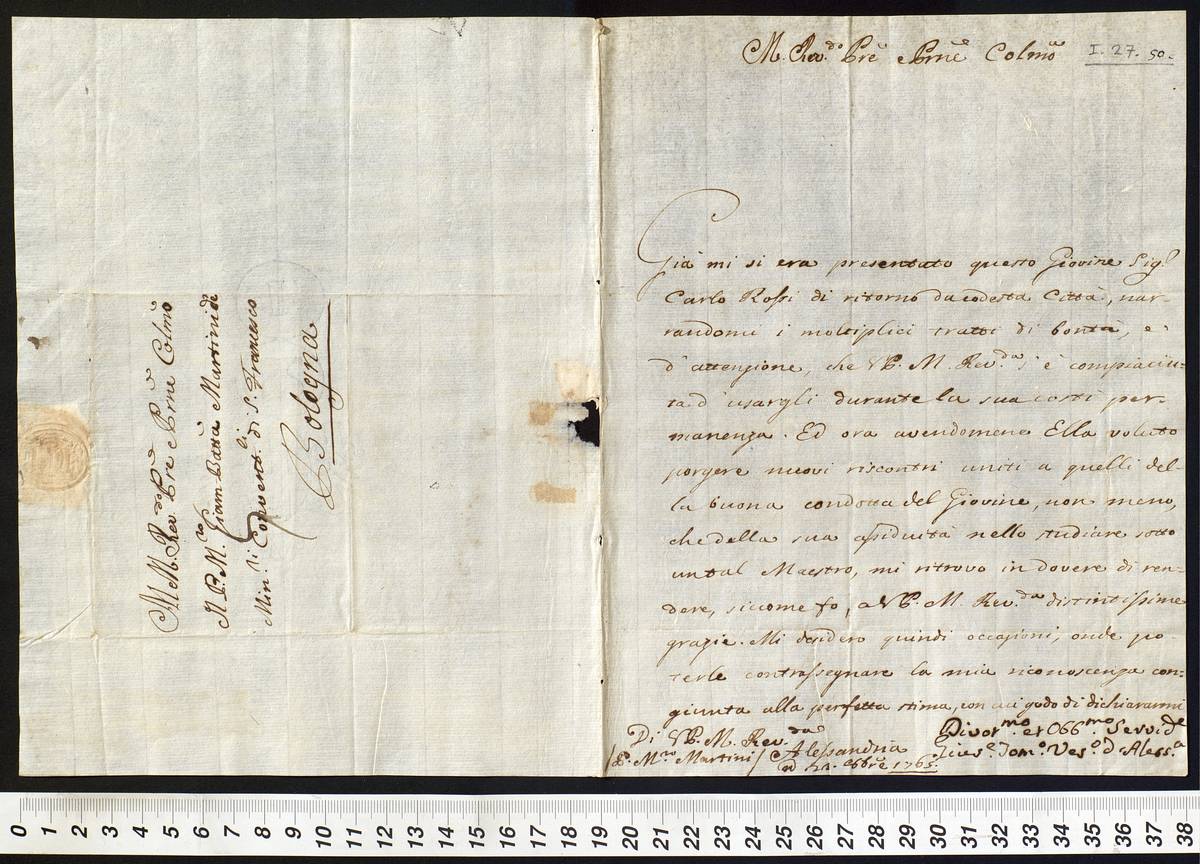 M. Rev.do Pre e Prne Colmo
I. 27. 50.
Già mi si era presentato questo Giovine Sig.
Carlo Rossi di ritorno da codesta Città, nar-
randomi i moltiplici tratti di bontà, e
d'attenzione, che VP. M. Rev.da s'è compiaciu-
ta d'usargli durante la sua costì per-
manenza. Ed ora avendomene Ella voluto
porgere nuovi riscontri uniti a quelli del-
la buona condotta del Giovine, non meno,
che della sua assiduità nello studiare sotto
un tal Maestro, mi ritrovo in dovere di ren-
dere, siccome fo, a VP. M. Rev.da distintissime
grazie. Mi desidero quindi occasioni, onde po-
terle contrassegnare la mia riconoscenza con-
giunta alla perfetta stima, con cui godo di dichiararmi
Di VP. M. Rev.da
Alessandria
1765.
/P. M.ro Martini/
Divot.mo et Obb.mo Servid.e
Vesc.o d'Aless.a
Al M. Rev.do Pre e Prne Colmo
Il P. M.ro Giam Batta Martini de
Min.ri Convent.li di S. Francesco
Bologna
0 1 2 3 4 5 6 7 8 9 10 11 12 13 14 15 16 17 18 19 20 21 22 23 24 25 26 27 28 29 30 31 32 33 34 35 36 37 38